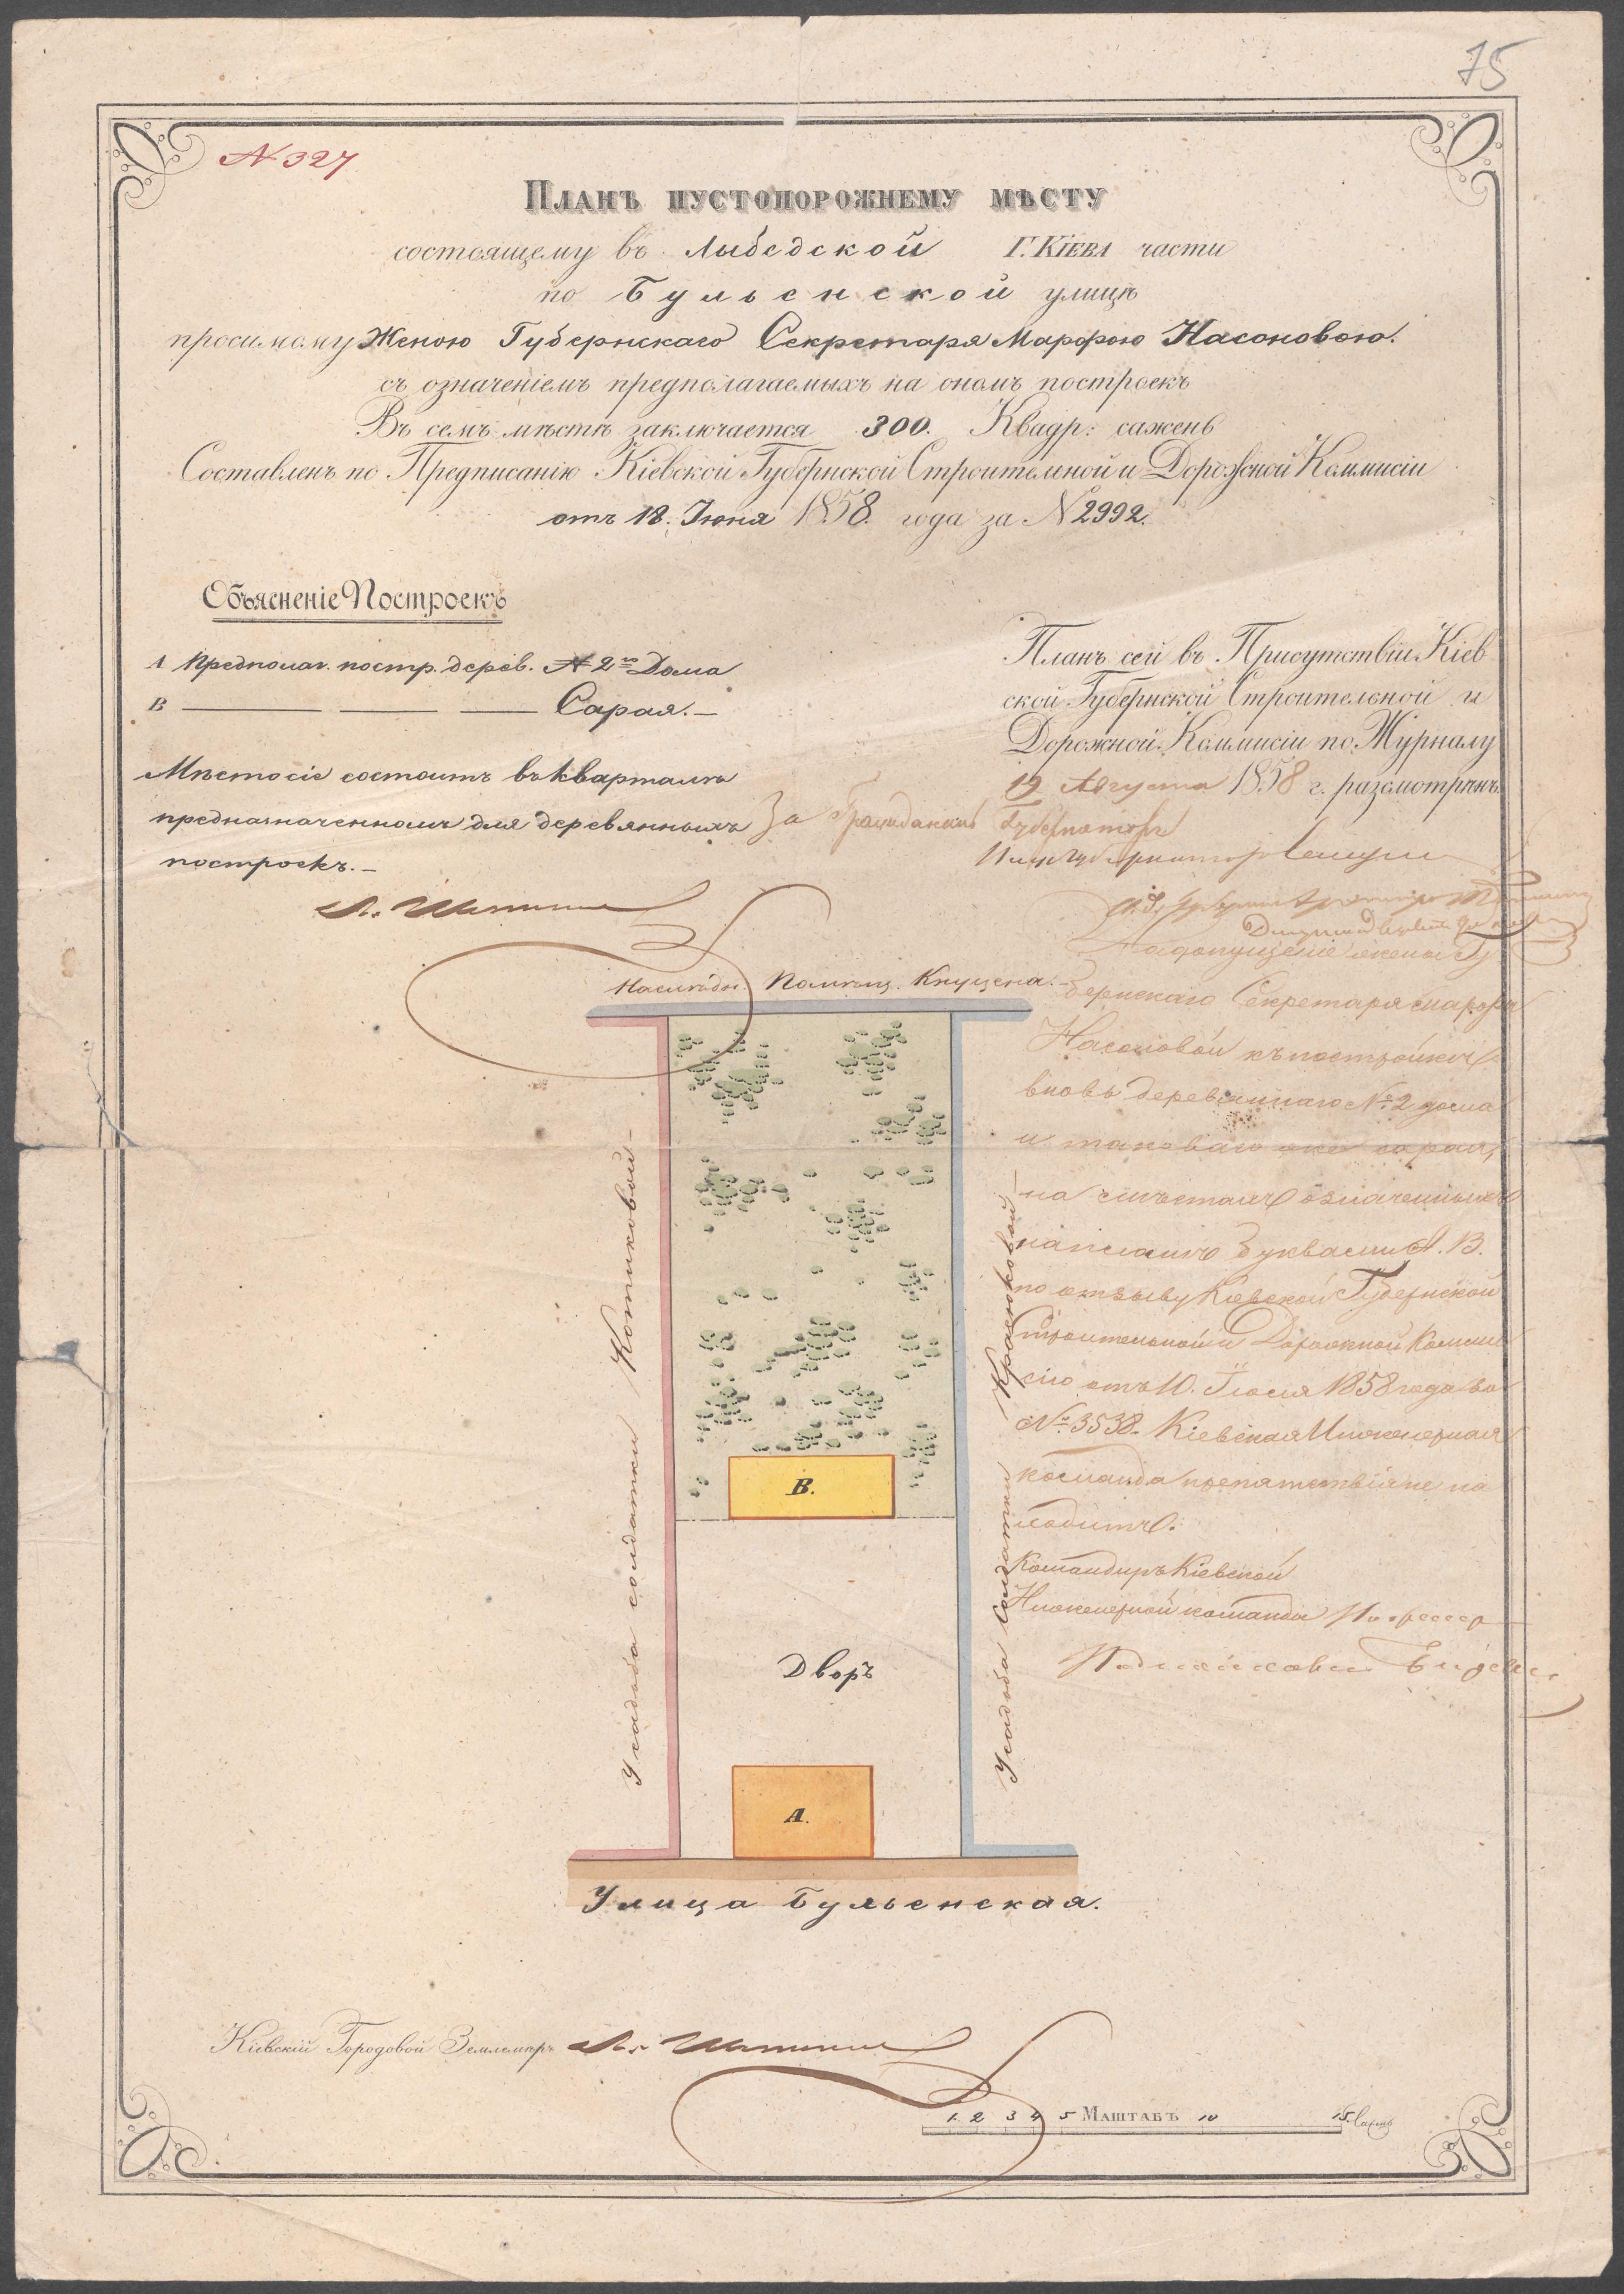 75
N 327
Планъ пустопорожнему мѣсту
состоящему въ Лыбедской Г. Кіева части
по Бульенской улицѣ
просимому Женою Губернскаго Секретаря Марфою Насоновою.
съ означеніемъ предполагаемыхъ на ономъ построекъ
Въ семъ мѣстѣ заключается 300. Квадр: сажень
Составленъ по Предписанію Кіевской Губернской Строительной и Дорожной Коммисіи
отъ 18. Іюня 1858. года за N 2992.
Объясненіе Построекъ
А Предполаг. постр. дерев. N 2го Дома
В Сарая.
Мѣсто сіе состоитъ въ кварталѣ
предназначенномъ для деревянныхъ
построекъ.
Планъ сей въ Присутствіи Кіев
ской Губернской Строительной и
Дорожной Коммисіи по Журналу
19 Августа 1858 г. разсмотрѣнъ
За Гражданскаго Губернатора
Вице Губернаторъ
На допущеніе жены Гу
бернскаго Секретаря Марфы
Насоновой къ постройкѣ
вновь деревяннаго № 2 дома
и таковаго же сарая,
на мѣстахъ означенныхъ
на планѣ буквами А. В.
по отзыву Кіевской Губернской
Строительной и Дорожной Комми
сіи отъ 10. Іюля 1858 года за
№ 3538. Кіевская Инженерная
команда препятствія не на
ходитъ.
Командиръ Кіевской
Инженерной команды
Наслѣдн. Помѣщ.
Усадьба солдатки Котиковой
Усадьба Солдатки
В.
Дворъ
А.
Улица Бульенская.
Кіевскій Городовой Землемѣръ
1 2 3 4 5 Маштабъ 10 15 Сажень